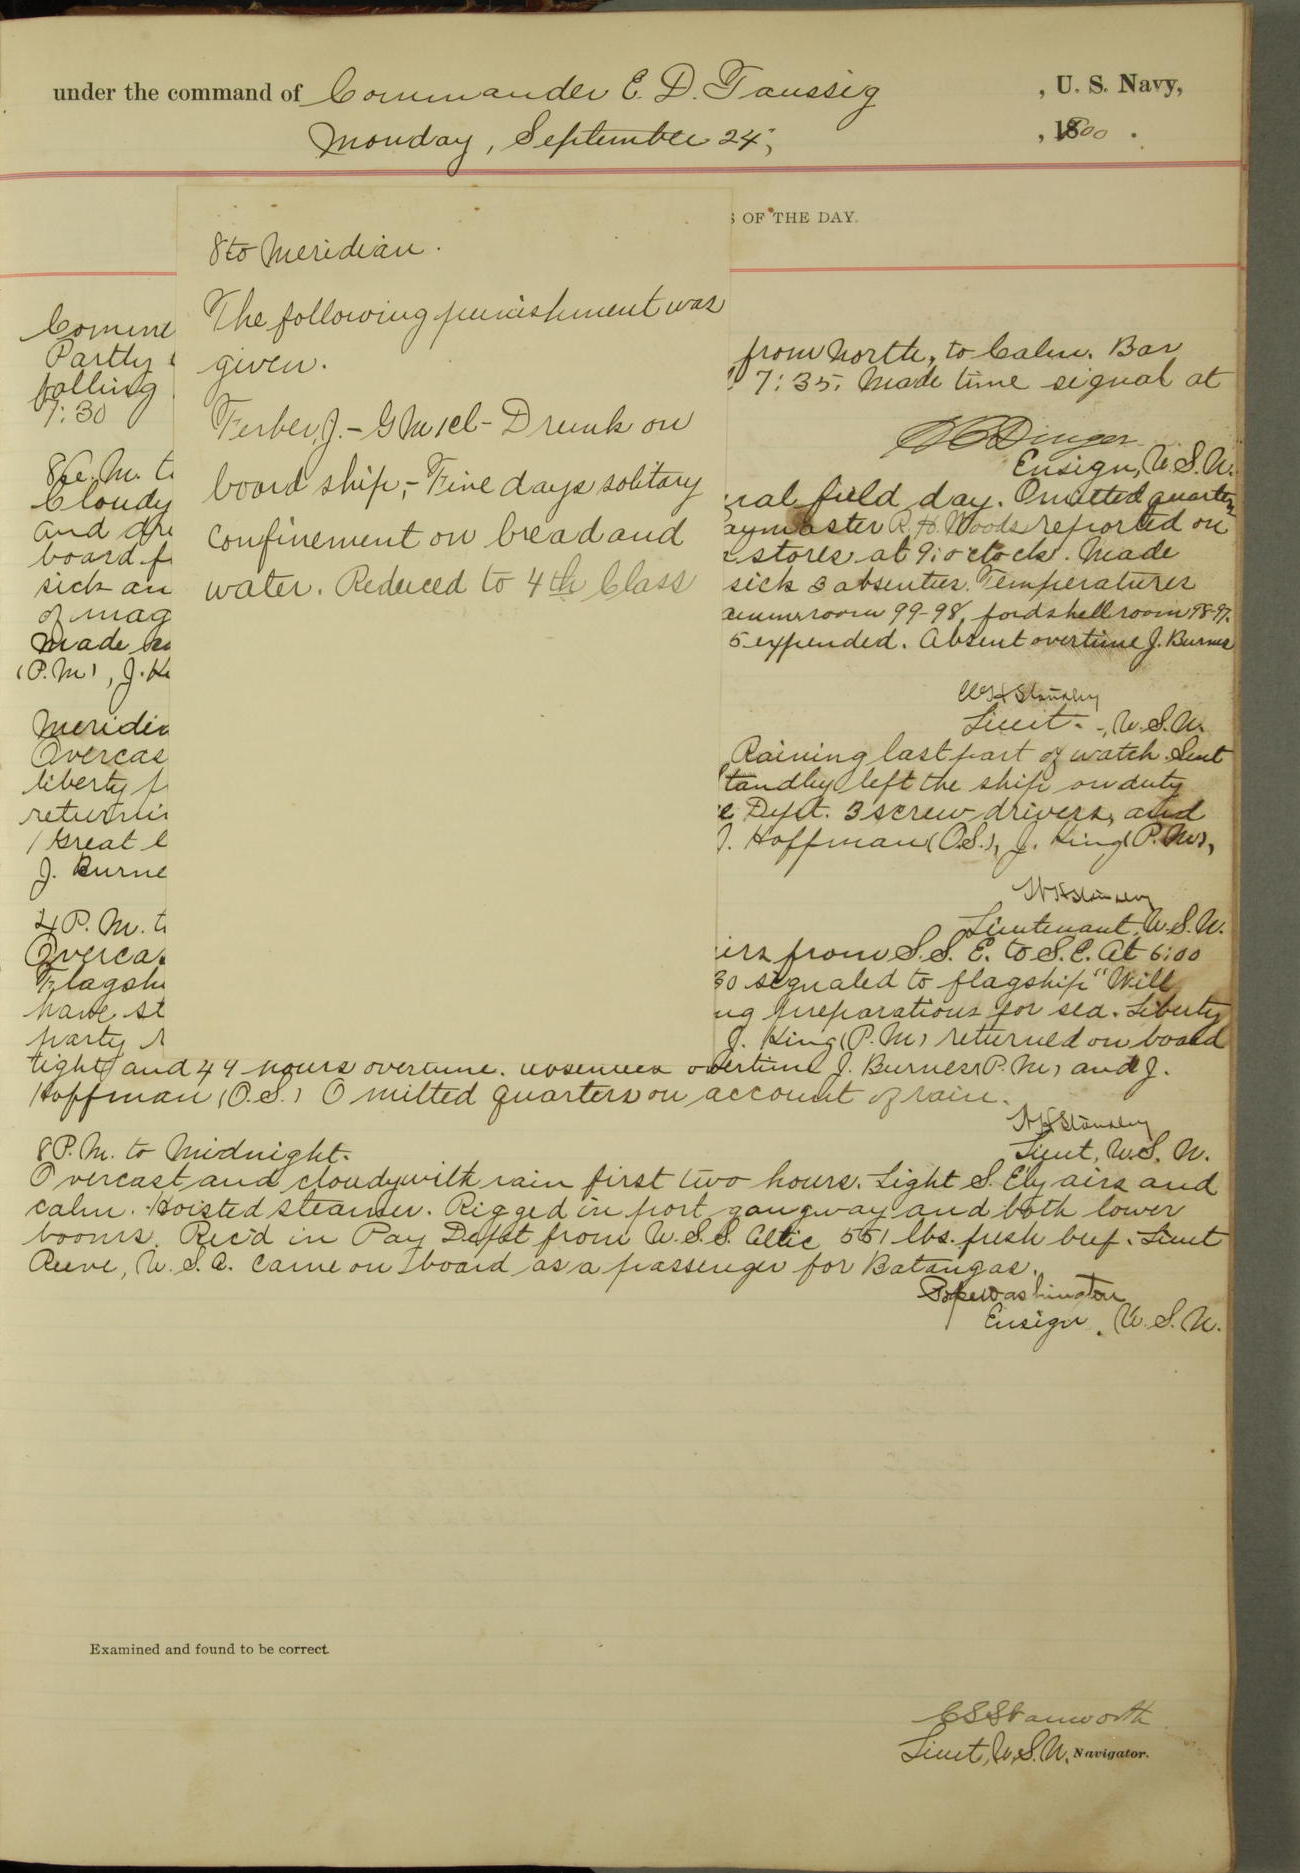 under the command of Commander E. D. Taussig, U. S. Navy,
Monday, September 24, , 1900 .
S OF THE DAY.
8 to Meridian.
The following punishment was
given.
Ferber, J. - G M 1 cl - Drunk on
board ship, - Five days solitary
confinement on bread and
water. Reduced to 4th Class
Comme from North, to Calm. Bar
Partly
falling 7:35. Made time signal at
7:30
Ensign, U.S.N.
8 A.M. t
Cloudy ral field day. Omitted quarters
and dre aymaster R. H. Woods reported on
board f stores at 9: o'clock. Made
sick an sick 3 absentees. Temperatures
of mag room 99-98, ford shell room 98-97.
made 5 expended. Absent overtime J. Burnes
(P.M), J. K
W H Standley
Lieut., U.S.N.
Meridia
Overcas Raining last part of watch. Lieut
liberty f tandley left the ship on duty
returni e Dept. 3 screw drivers, and
1 Great J. Hoffman (O.S.), J. King (P.M),
J. Burne
W H Standley
Lieutenant, U.S.N.
4 P.M. t
Overca airs from S.S.E. to S.E. At 6:00
Flagshi 30 signaled to flagship "Will
have st ng preparations for sea. Liberty
party r J. King (P.M) returned on board
tight and 49 hours overtime. Absentees overtime J. Burnes (P.M) and J.
Hoffman (O.S.) Omitted quarters on account of rain.
W H Standley
Lieut, U.S.N.
8 P.M. to Midnight.
Overcast and cloudy with rain first two hours. Light S. E'ly airs and
calm. Hoisted steamer. Rigged in port gangway and both lower
booms. Rec'd in Pay Dept from U.S.S. Celtic 551 lbs. fresh beef. Lieut
Reeve, U.S.A. came on board as a passenger for Batangas.
Pope Washington
Ensign, U.S.N.
Examined and found to be correct.
C S Stanworth
Lieut, U.S.N, Navigator.